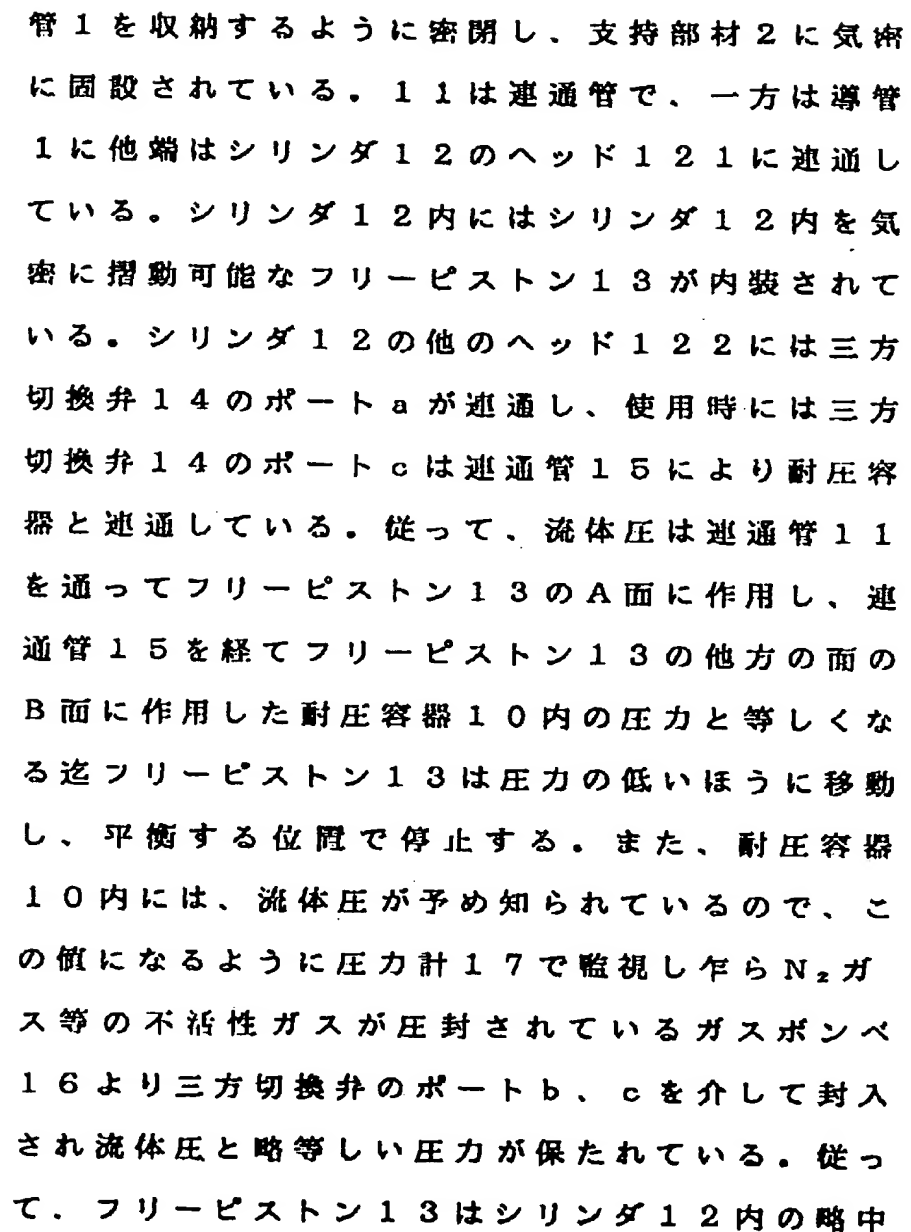 管1を収納するように密閉し、支持部材2に気密
に固設されている。11は連通管で、一方は導管
1に他端はシリンダ12のヘッド121に連通し
ている。シリンダ12内にはシリンダ12内を気
密に摺動可能なフリーピストン13が内装されて
いる。シリンダ12の他のヘッド122には三方
切換弁14のポートaが連通し、使用時には三方
切換弁14のポートcは連通管15により耐圧容
器と連通している。従って、流体圧は連通管11
を通ってフリーピストン13のA面に作用し、連
通管15を経てフリーピストン13の他方の面の
B面に作用した耐圧容器10内の圧力と等しくな
る迄フリーピストン13は圧力の低いほうに移動
し、平衡する位置で停止する。また、耐圧容器
10内には、流体圧が予め知られているので、こ
の値になるように圧力計17で監視し乍らN₂ガ
ス等の不活性ガスが圧封されているガスボンベ
16より三方切換弁のポートb、cを介して封入
され流体圧と略等しい圧力が保たれている。従っ
て、フリーピストン13はシリンダ12内の略中